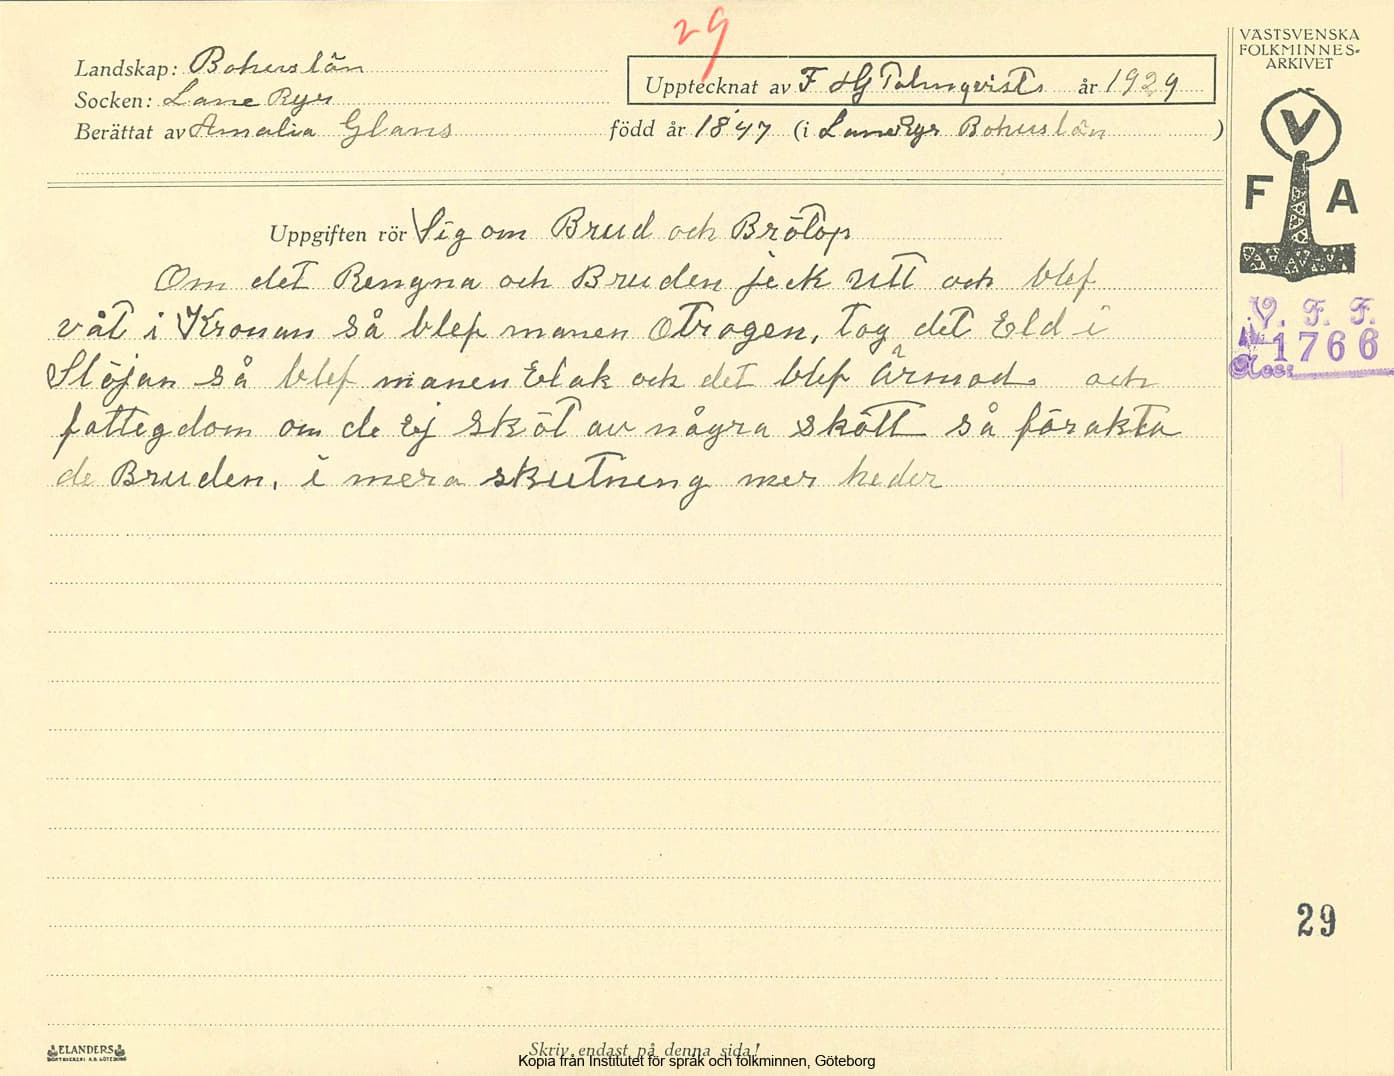 29
VÄSTSVENSKA
FOLKMINNES-
ARKIVET
Landskap: Bohuslän
Upptecknat av F HG Palmqvist år 1929
Socken: Lane Ryr
Berättat av Amalia Glans född år 1847 (i LaneRyr Bohuslän )
V
F A
Uppgiften rör Sig om Brud och Brölop
Om det Rengna och Bruden jeck utt och blef
våt i Kronan så blef manen Otrogen, tog det Eld i
Slöjan så blef manen Elak och det blef Ärmod och
fattegdom om de Ej sköt av några skött så förakta
de Bruden, i mera skutneng mer heder
V. F. F.
1766
Acc:
29
ELANDERS
BOKTRYCKERI A.B. GÖTEBORG
Skriv endast på denna sida!
Kopia från Institutet för språk och folkminnen, Göteborg